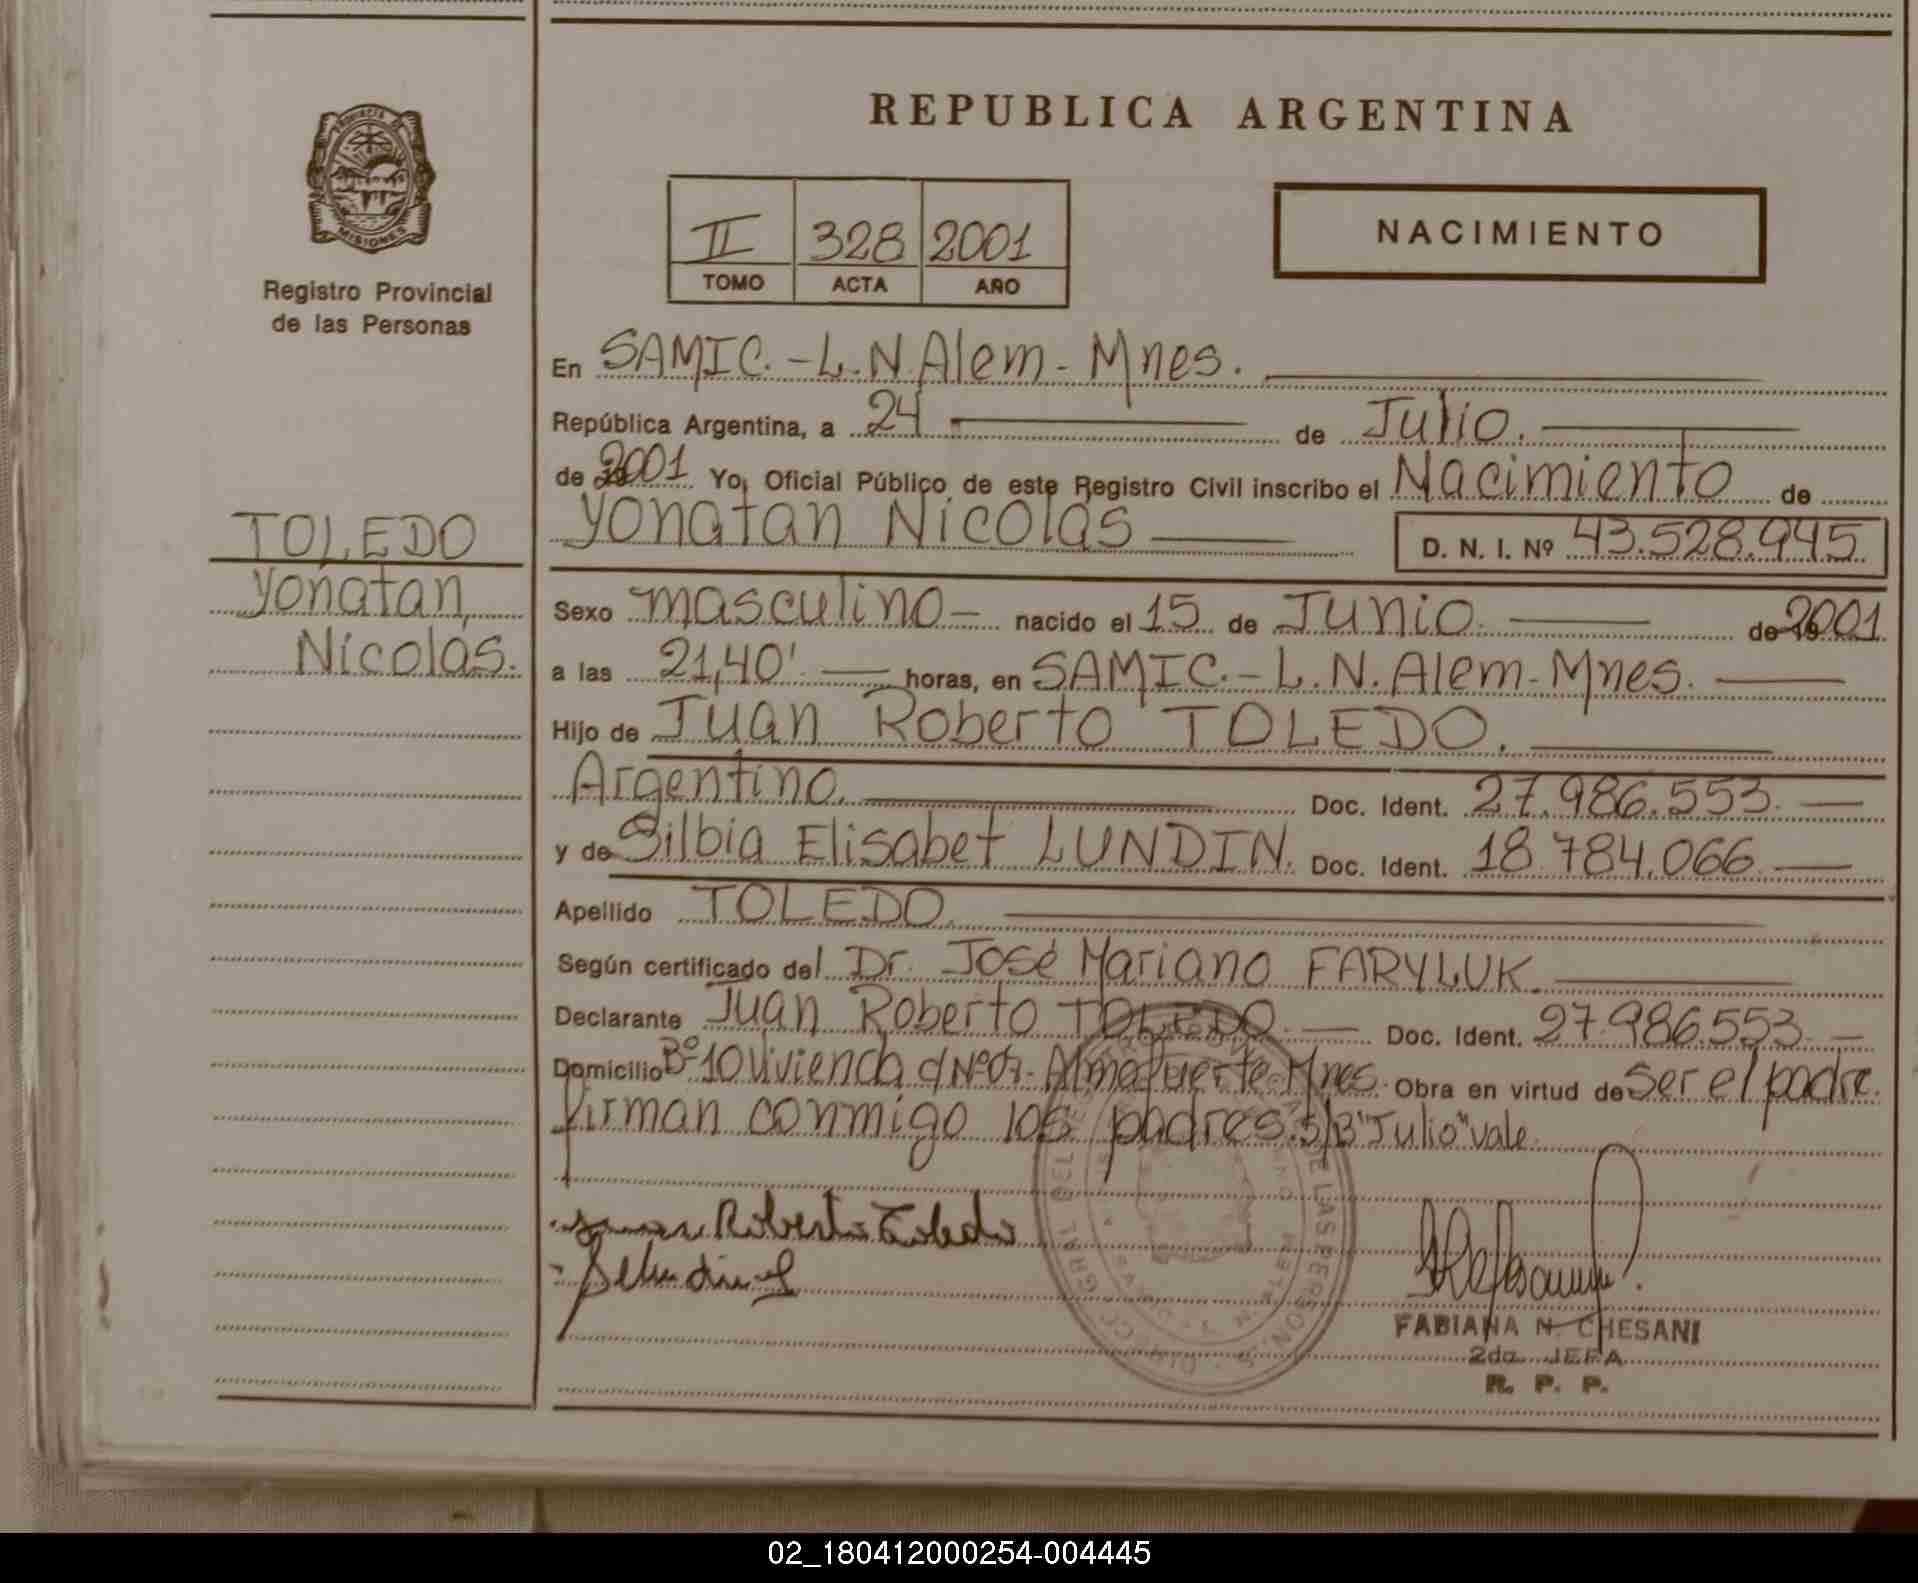 REPUBLICA ARGENTINA
PROVINCIA DE
MISIONES
Registro Provincial
de las Personas
II 328 2001
TOMO ACTA AÑO
NACIMIENTO
En SAMIC.-L.N.Alem-Mnes.
República Argentina, a 24 de Julio.
de 2001 Yo, Oficial Público de este Registro Civil inscribo el Nacimiento de
Yonatan Nicolás
D. N. I. Nº 43.528.945
TOLEDO
Yonatan
Nicolás.
Sexo masculino- nacido el 15 de Junio. de 2001
a las 21,40'. horas, en SAMIC.-L.N.Alem-Mnes.
Hijo de Juan Roberto TOLEDO.
Argentino. Doc. Ident. 27.986.553.
y de Silbia Elisabet LUNDIN. Doc. Ident. 18.784.066
Apellido TOLEDO.
Según certificado del Dr. José Mariano FARYLUK.
Declarante Juan Roberto TOLEDO. Doc. Ident. 27.986.553.
Domicilio Bº 10 Vivienda c/Nº07- Almafuerte-Mnes. Obra en virtud de ser el padre.
firman conmigo los padres. S/B "Julio" vale
FABIANA N. CHESANI
2da. JEFA
R. P. P.
02_180412000254-004445